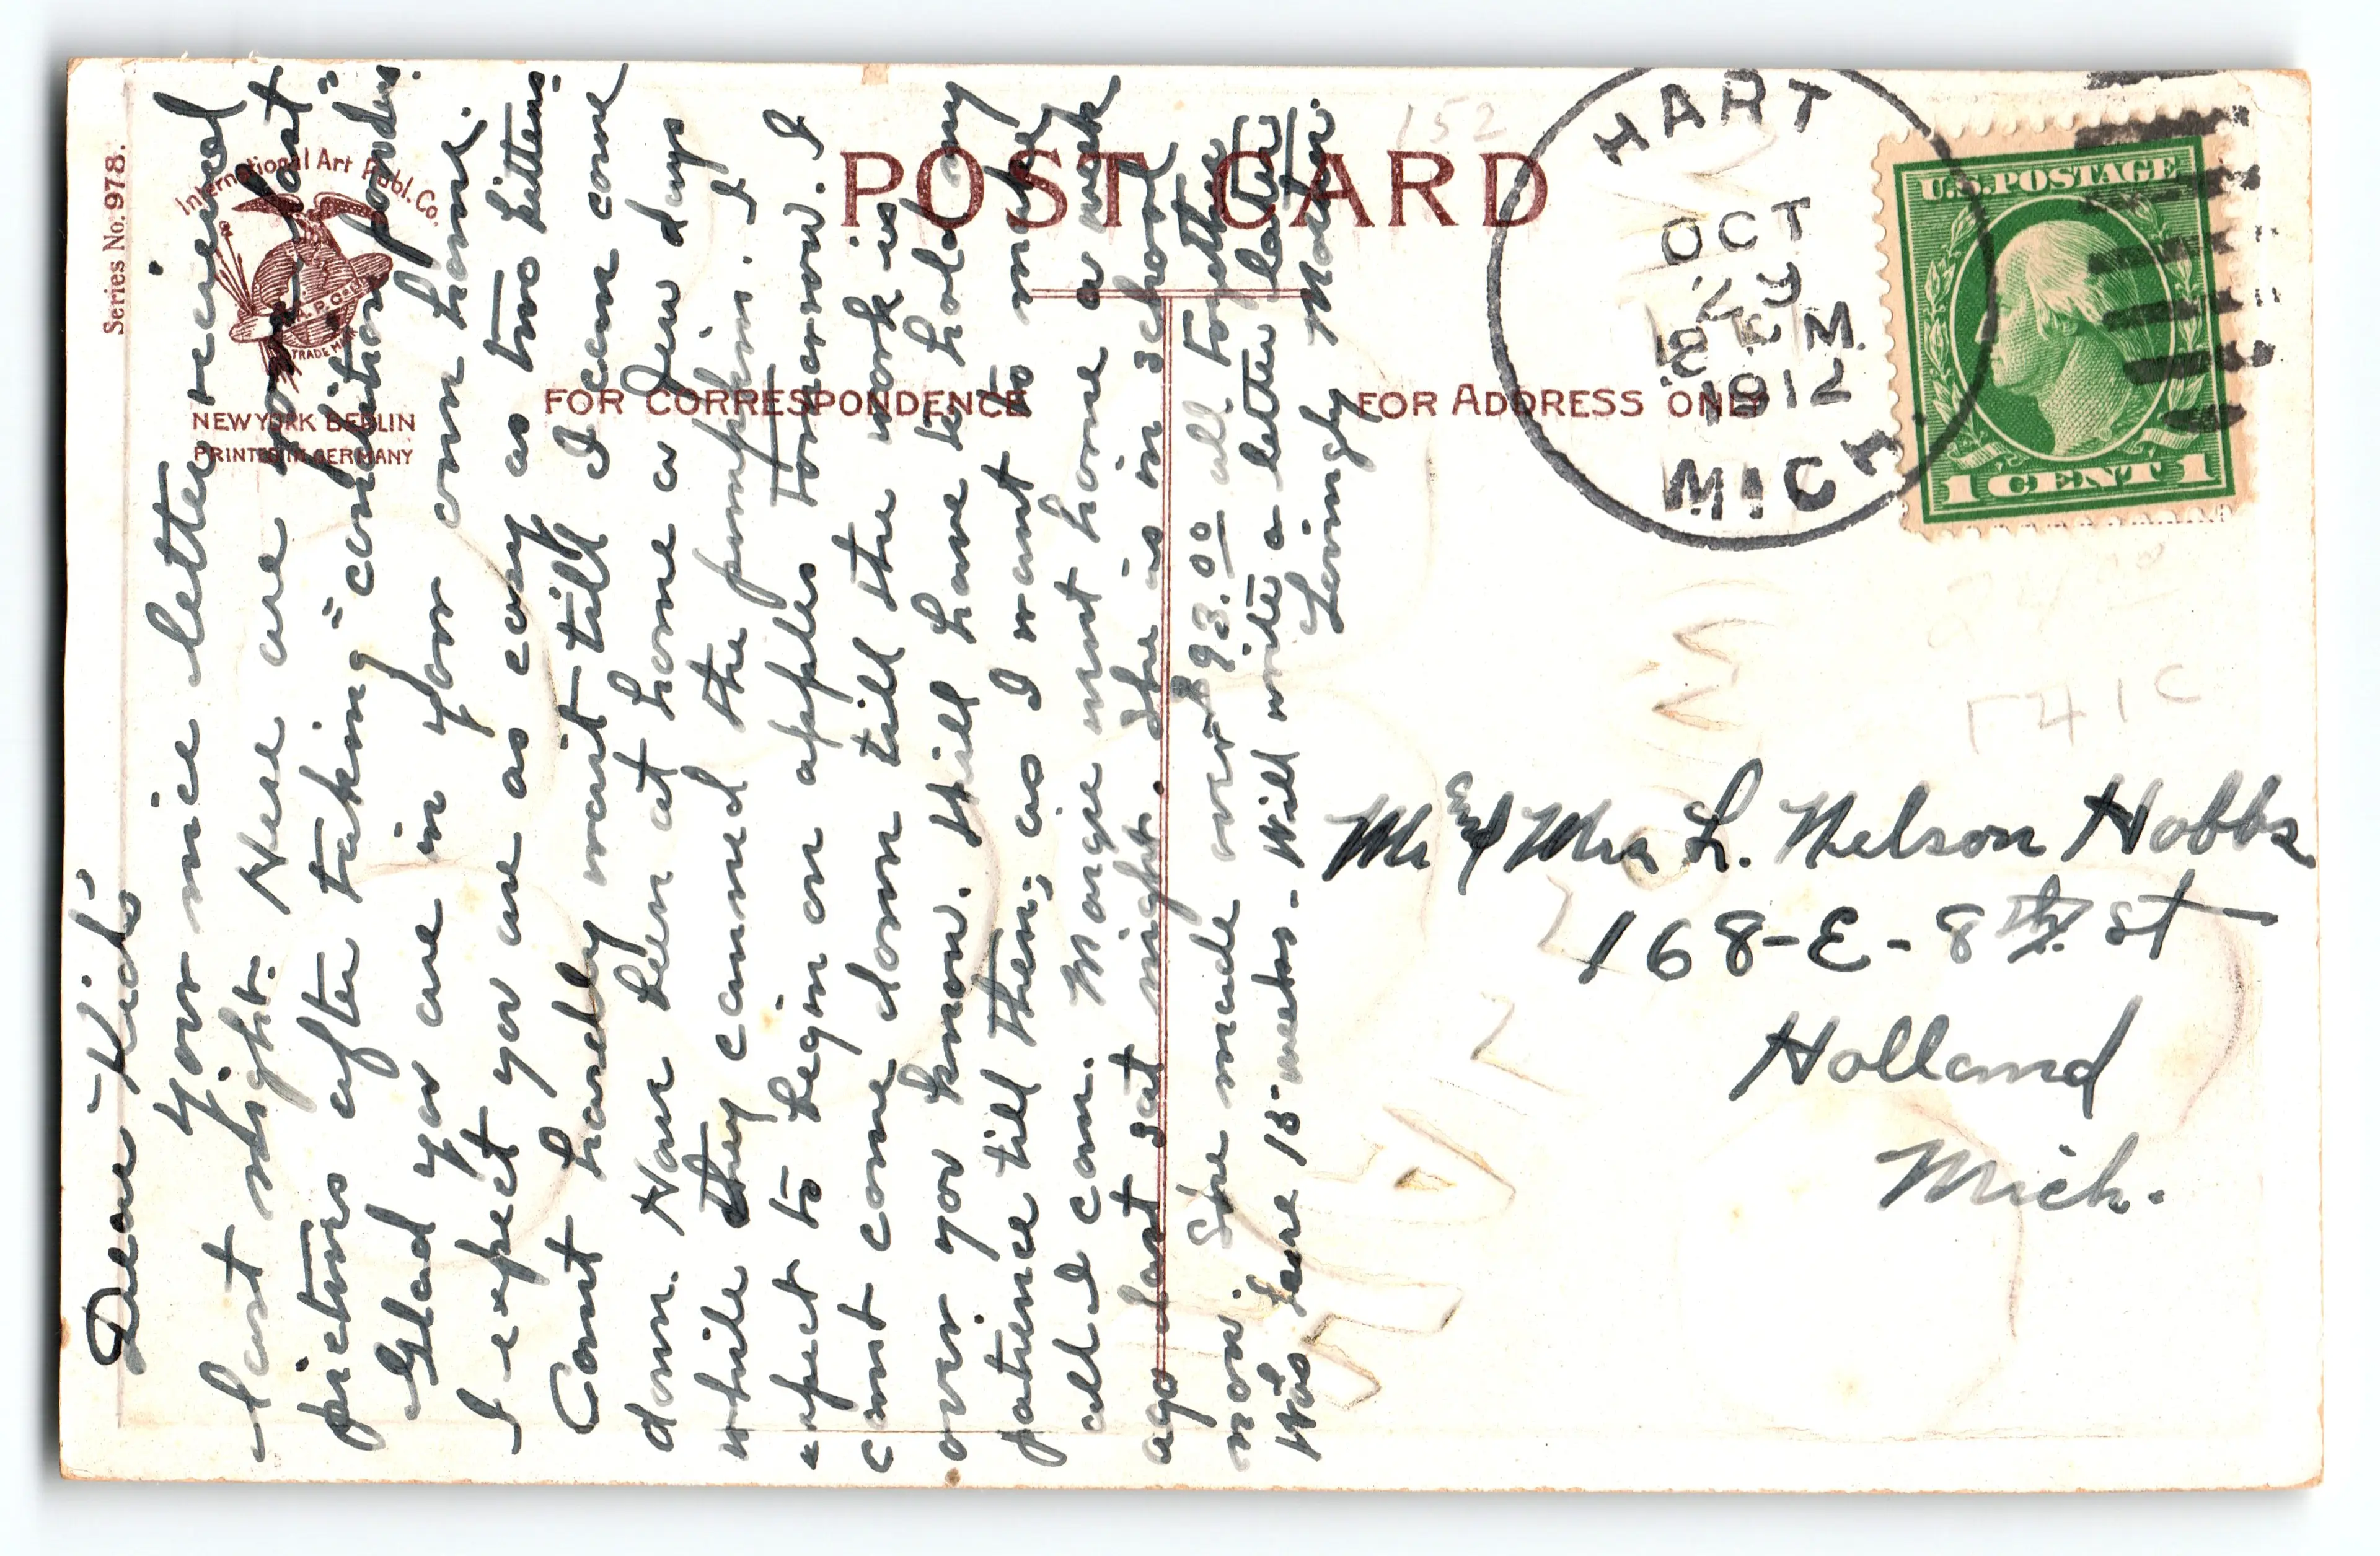 Series No. 978.
International Art Publ. Co.
TRADE MARK
NEW YORK BERLIN
PRINTED IN GERMANY
POST CARD
FOR CORRESPONDENCE
FOR ADDRESS ONLY
152
HART
OCT
29
M
1912
MICH.
U.S. POSTAGE
1 CENT 1
Dear "Kids"
Your nice letter received
last night. Here are your "cat"
pictures after taking "condition powders".
Glad you are in your own home.
I expect you are as cozy as two kittens.
Cant hardly wait till I can come
down. Have been at home a few days
while they canned the pumpkin. I
expect to begin on apples tomorrow. I
cant come down till the work is
over you know. Will have to hold my
patience till then; as I want to make
all I can. Marge went home a week
ago last Sat night. She is in school
now. She made over $93.00 all together
Was here 18 weeks. Will write a letter later
Lovingly Mother.
Mr and Mrs L. Nelson Hobbs
168-E-8th St
Holland
Mich.